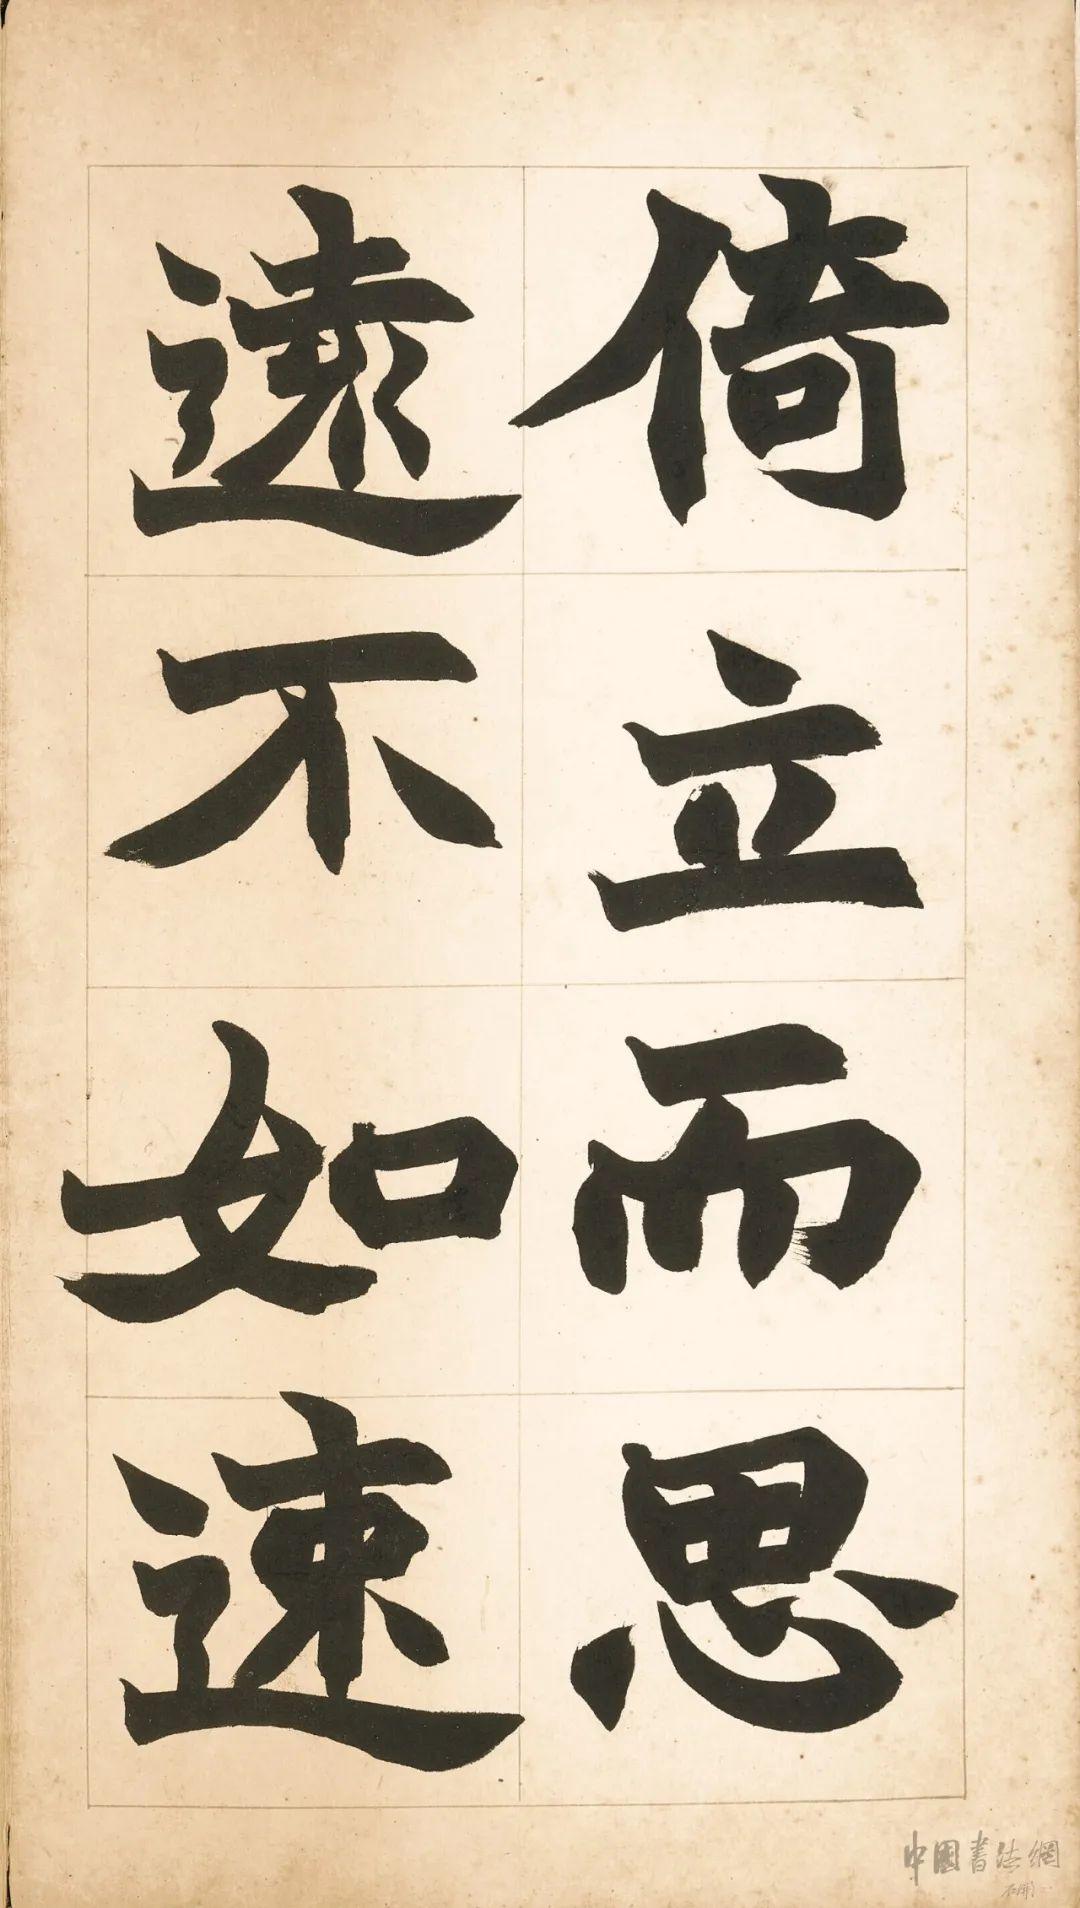 倚立而思
遠不如速
中國書法網